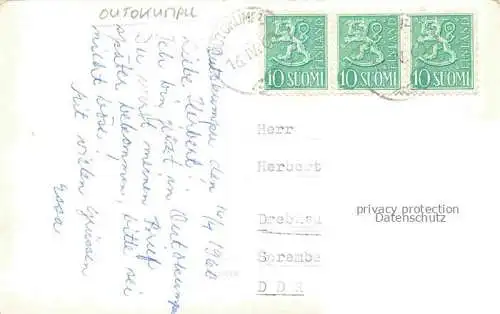 OUTOKUMPU
Outokumpu den 16/4 1960
Liebe Herbert!
Ich bin jetzt in Outokumpu
Du wirst meinen Brief
später bekommen, bitte sei
nicht böse.
Mit vielen Grüssen
Eeva
SUOMI FINLAND 10
SUOMI FINLAND 10
SUOMI FINLAND 10
Herr
Herbert
Drebkau
Spremberg
DDR
privacy protection
Datenschutz